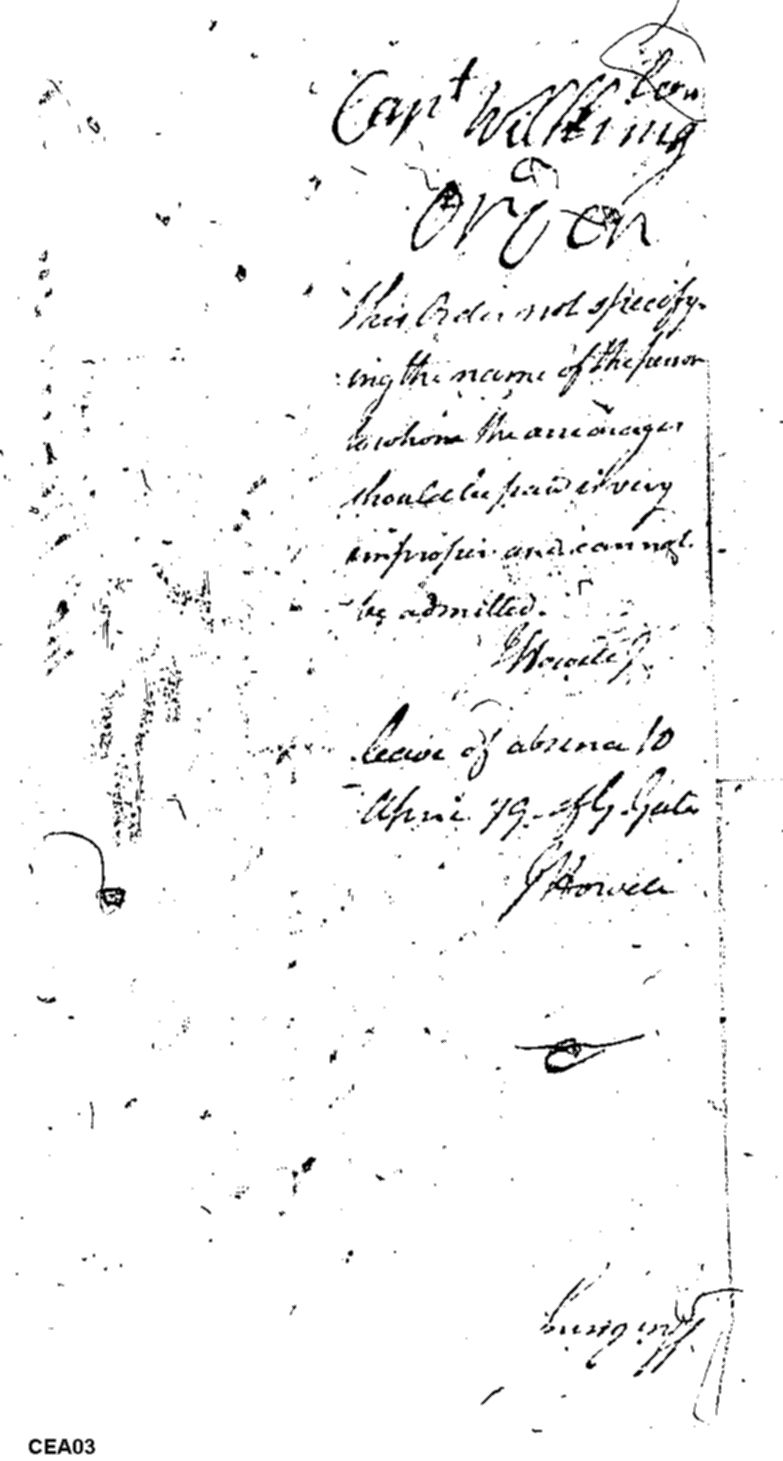 Capt Wilkins
Order
This Order not specify-
ing the name of the person
to whom the arrearages
should be paid is very
improper and cannot
be admitted.
J Howell J
leave of absence 10
April 79. of G. Gates
J Howell
CEA03